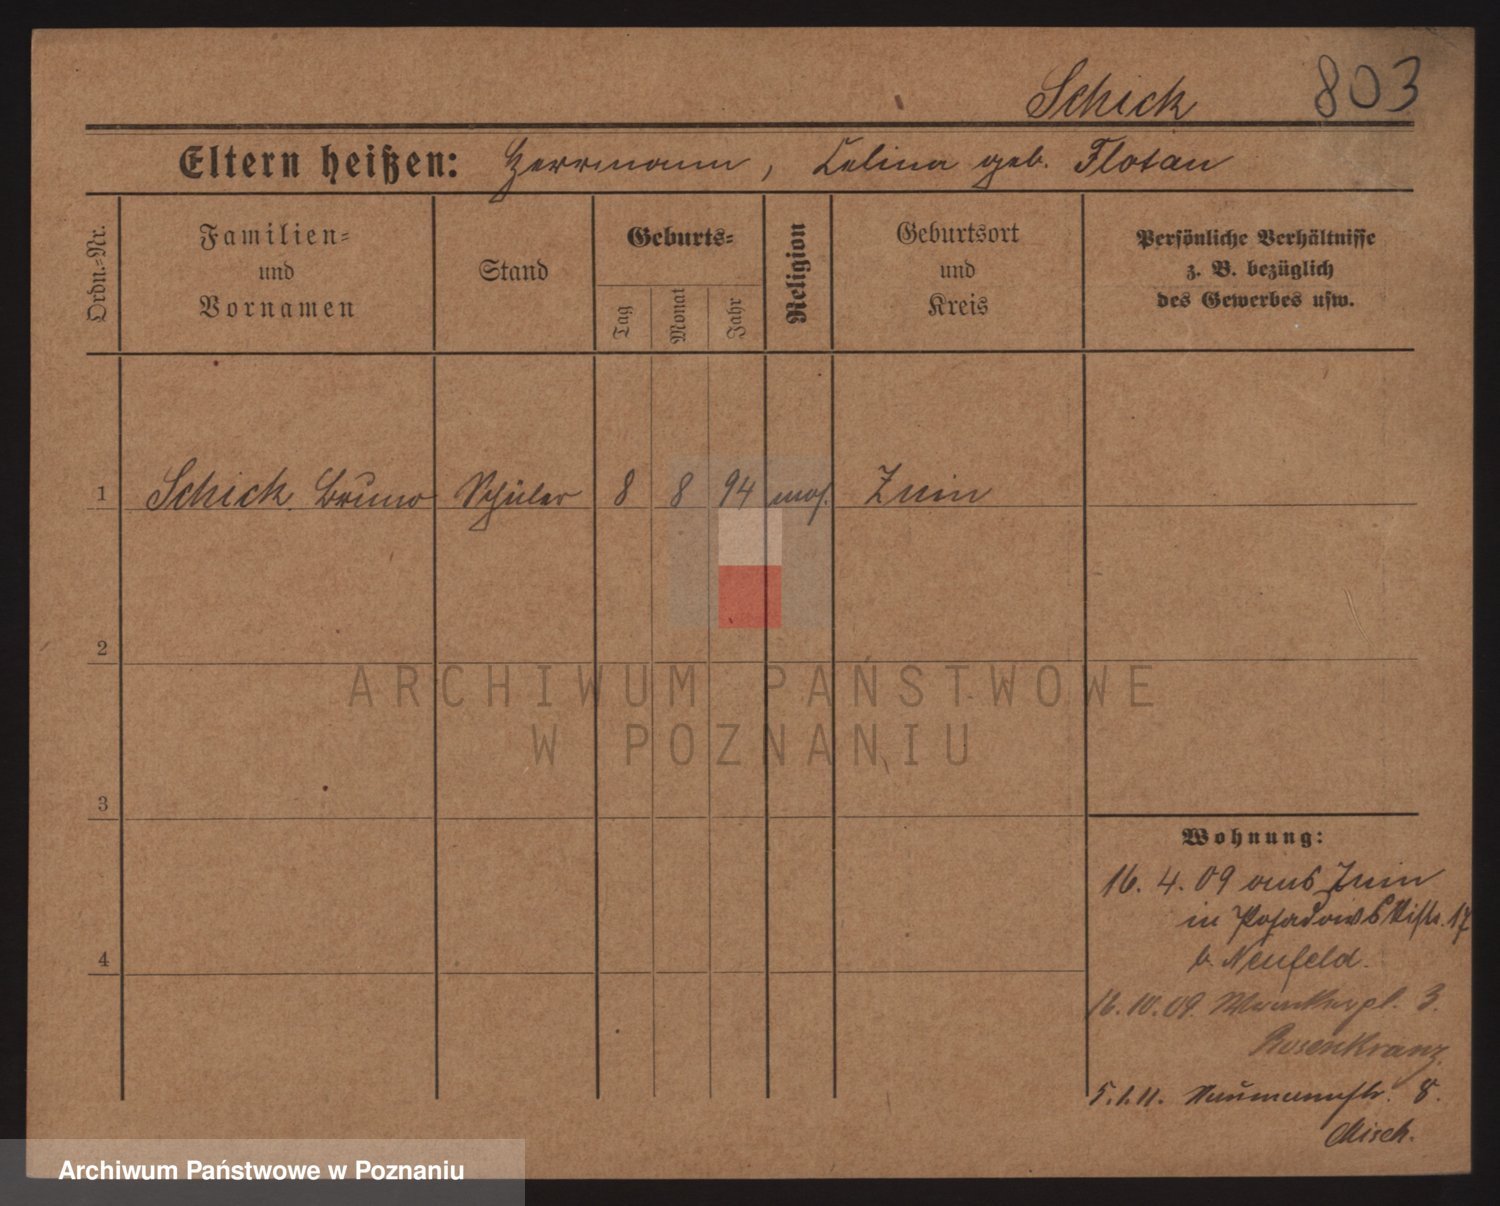 Schick 803
Eltern heißen: Herrmann, Celina geb. Flotau
Ordn.=Nr.
Familien=
und
Vornamen
Stand
Geburts=
Tag
Monat
Jahr
Religion
Geburtsort
und
Kreis
Persönliche Verhältnisse
z. B. bezüglich
des Gewerbes usw.
1 Schick Bruno Schüler 8 8 94 mos. Znin
2
ARCHIWUM PAŃSTWOWE
W POZNANIU
3
Wohnung:
16. 4. 09 aus Znin
in Posadowskistr. 17
b. Neufeld.
4
16. 10. 09. 3.
Rosenkranz
5. 1. 11. Naumannstr. 8.
Misch.
Archiwum Państwowe w Poznaniu